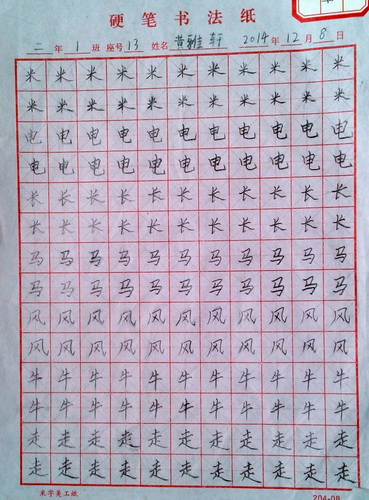 硬笔书法纸
二年1班 座号13 姓名 黄雅轩 2014年12月8日
米米米米米米米米米米米
米米米米米米米米米米米
电电电电电电电电电电电
电电电电电电电电电电电
长长长长长长长长长长长
长长长长长长长长长长长
马马马马马马马马马马马
马马马马马马马马马马马
风风风风风风风风风风风
风风风风风风风风风风风
牛牛牛牛牛牛牛牛牛牛牛
牛牛牛牛牛牛牛牛牛牛牛
走走走走走走走走走走走
走走走走走走走走走走走
204-08